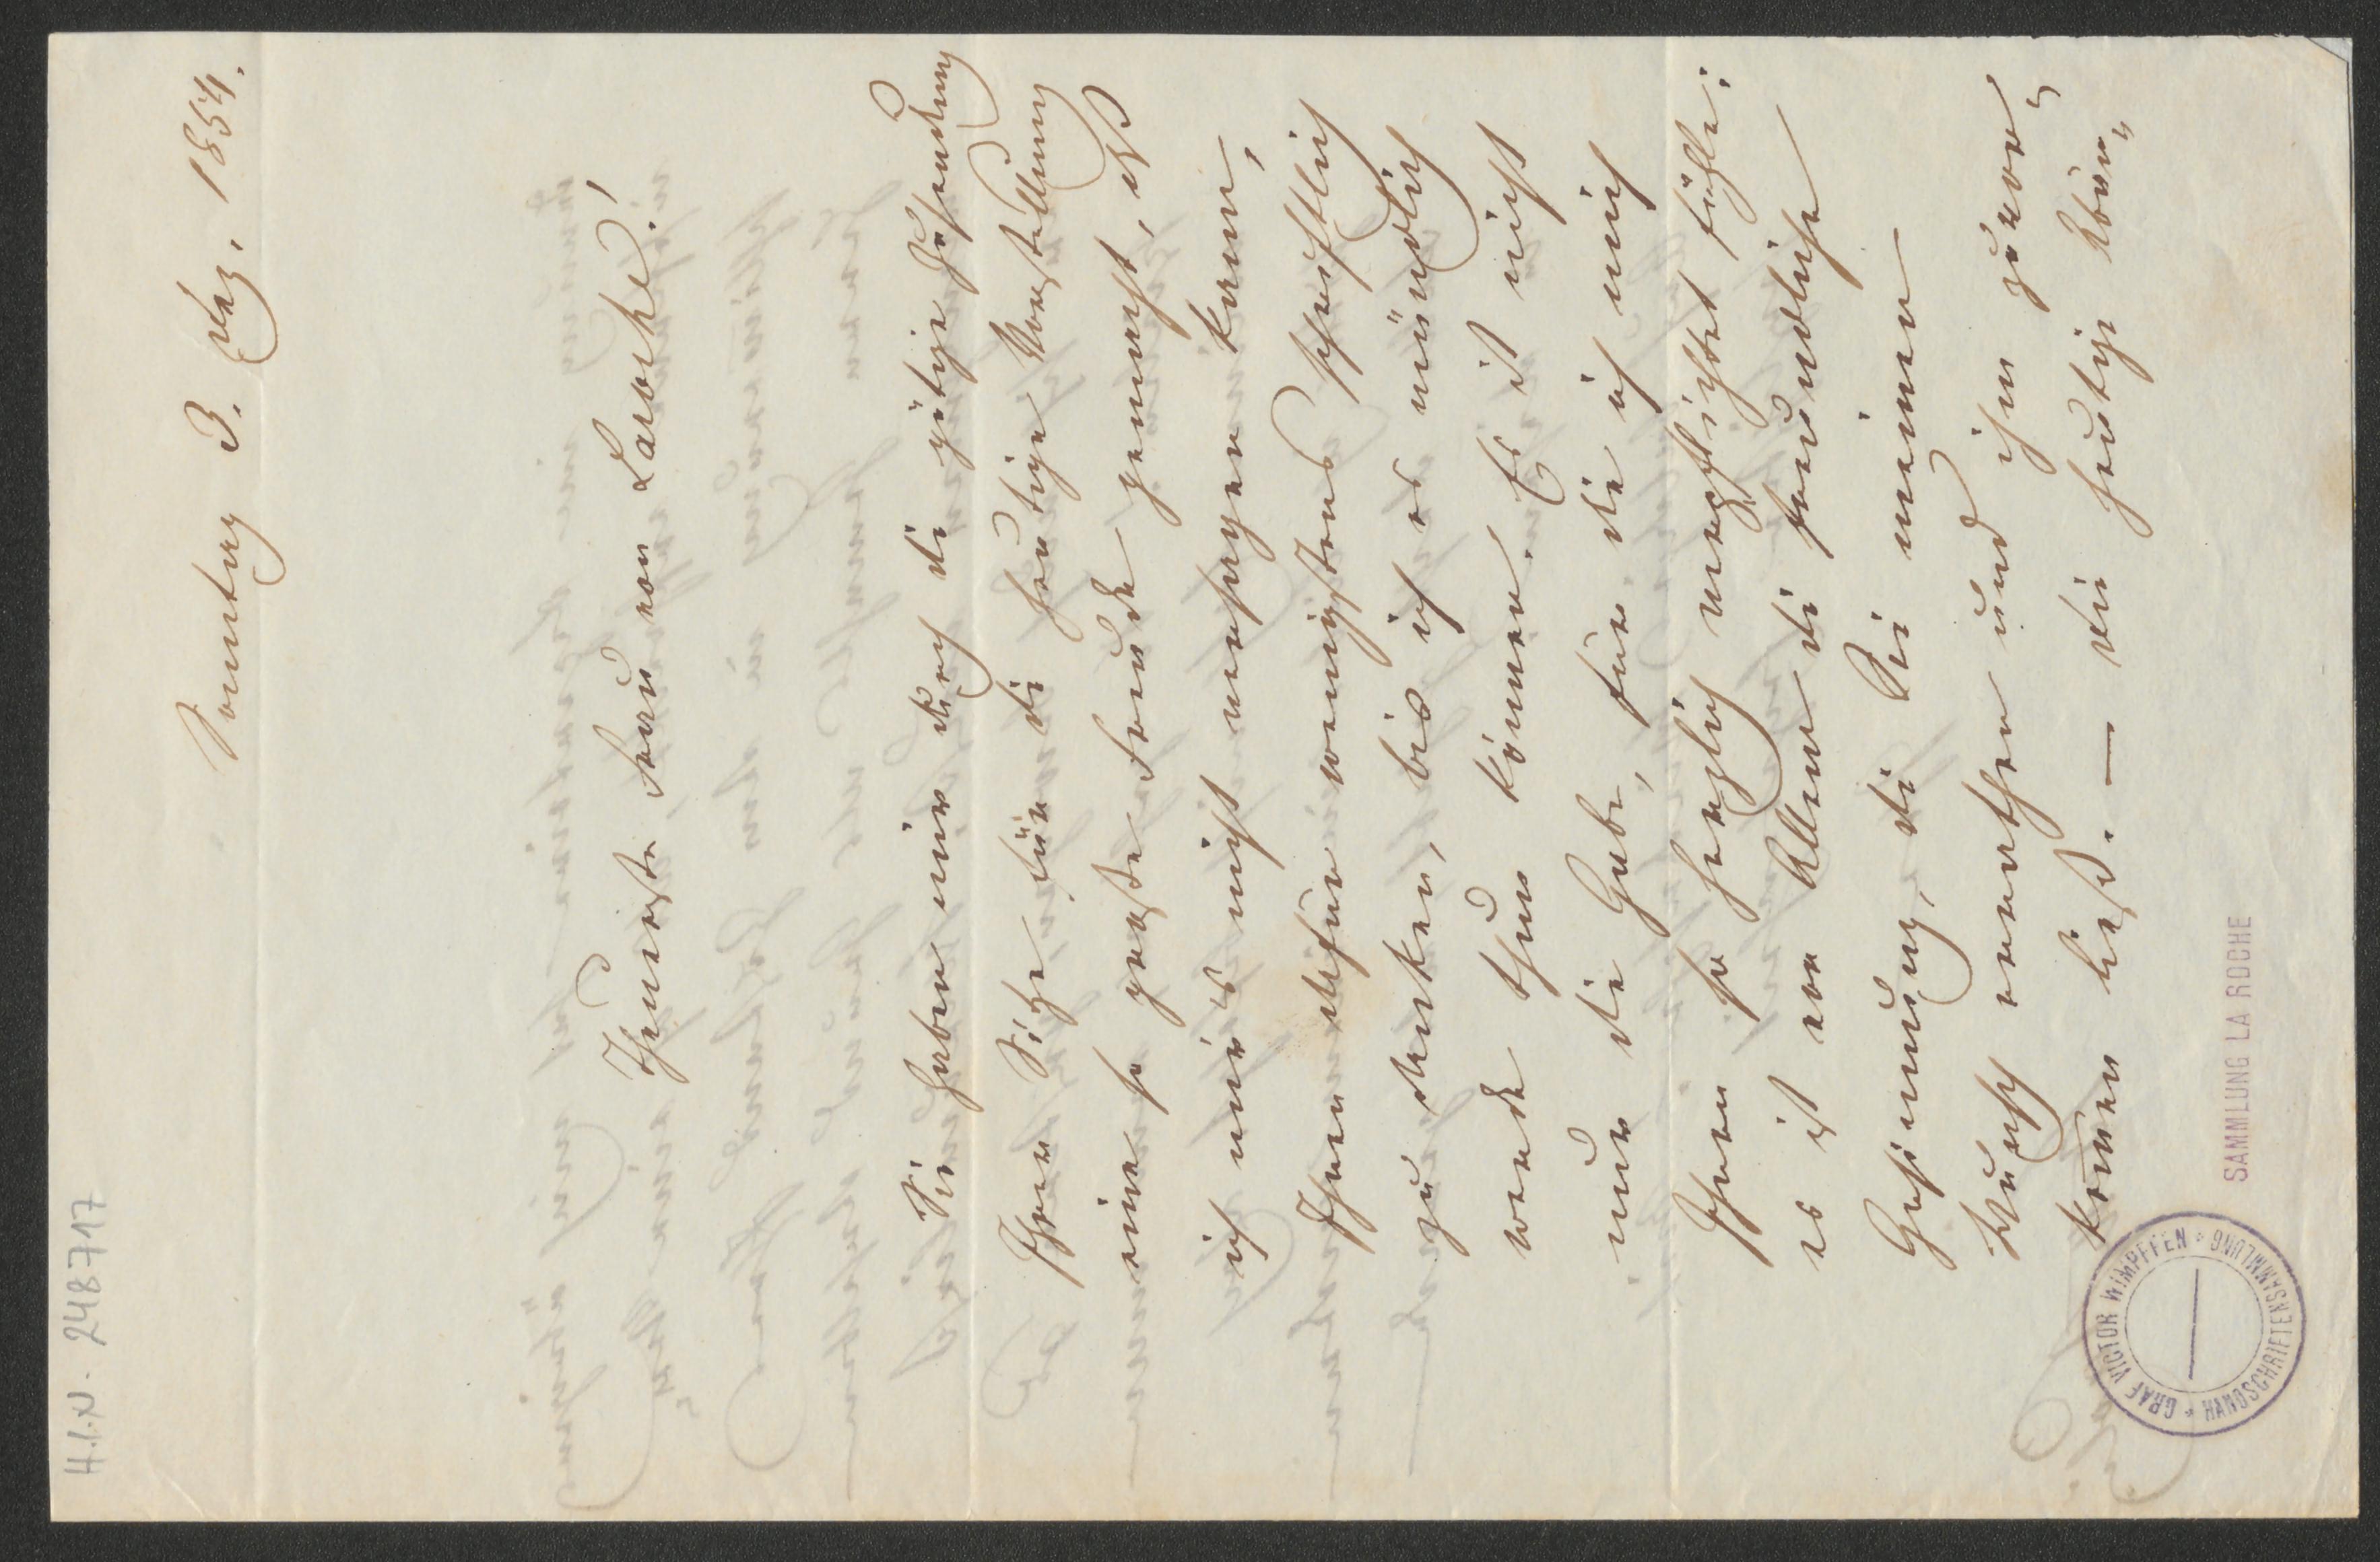 H.I.N. 248717
Sonntag 3. Dez. 1854.
Theuerste Frau von Laroche!
Sie haben mir durch die gütige Zusendung
Ihrer Sitze für die heutige Vorstellung
eine so große Freude gemacht, daß
ich mir's nicht versagen kann,
Ihnen dafür wenigstens schriftlich
zu danken, bis ich es mündlich
werde thun können. Es ist nicht
nur die Gabe, für die ich mich
Ihnen so herzlich verpflichtet fühle;
es ist vor Allem die freundliche
Gesinnung, die Sie meinen
Wunsch errathen und ihm zuvor-
kommen ließ. — Die heutige
SAMMLUNG LA ROCHE
GRAF VICTOR WIMPFFEN * HANDSCHRIFTENSAMMLUNG *